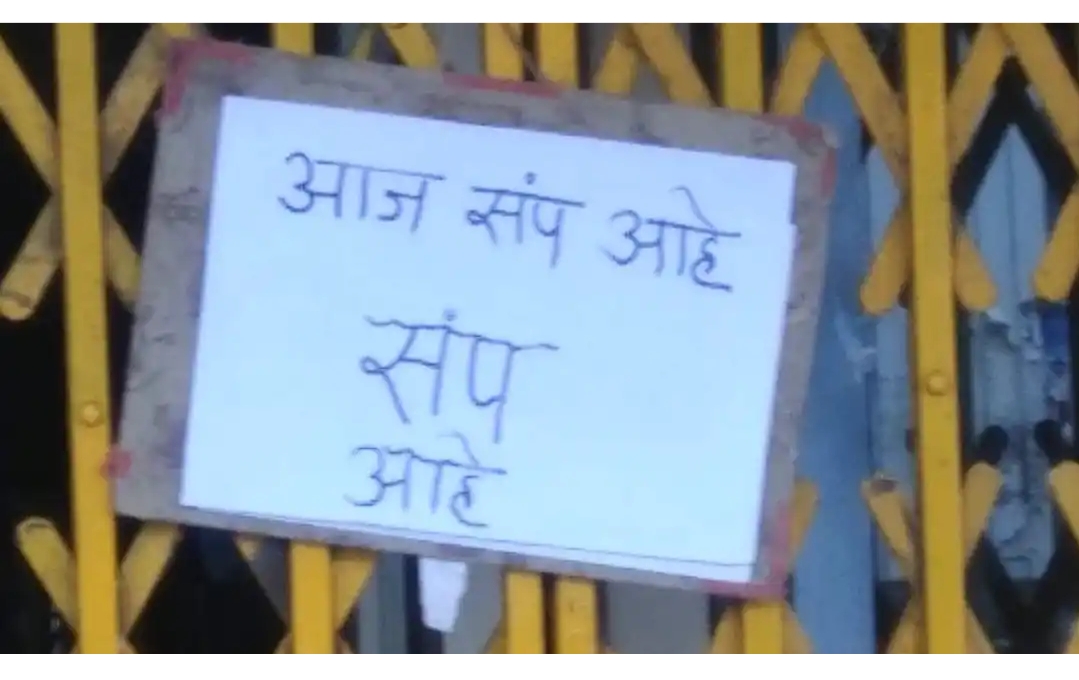 आज संप आहे
संप
आहे